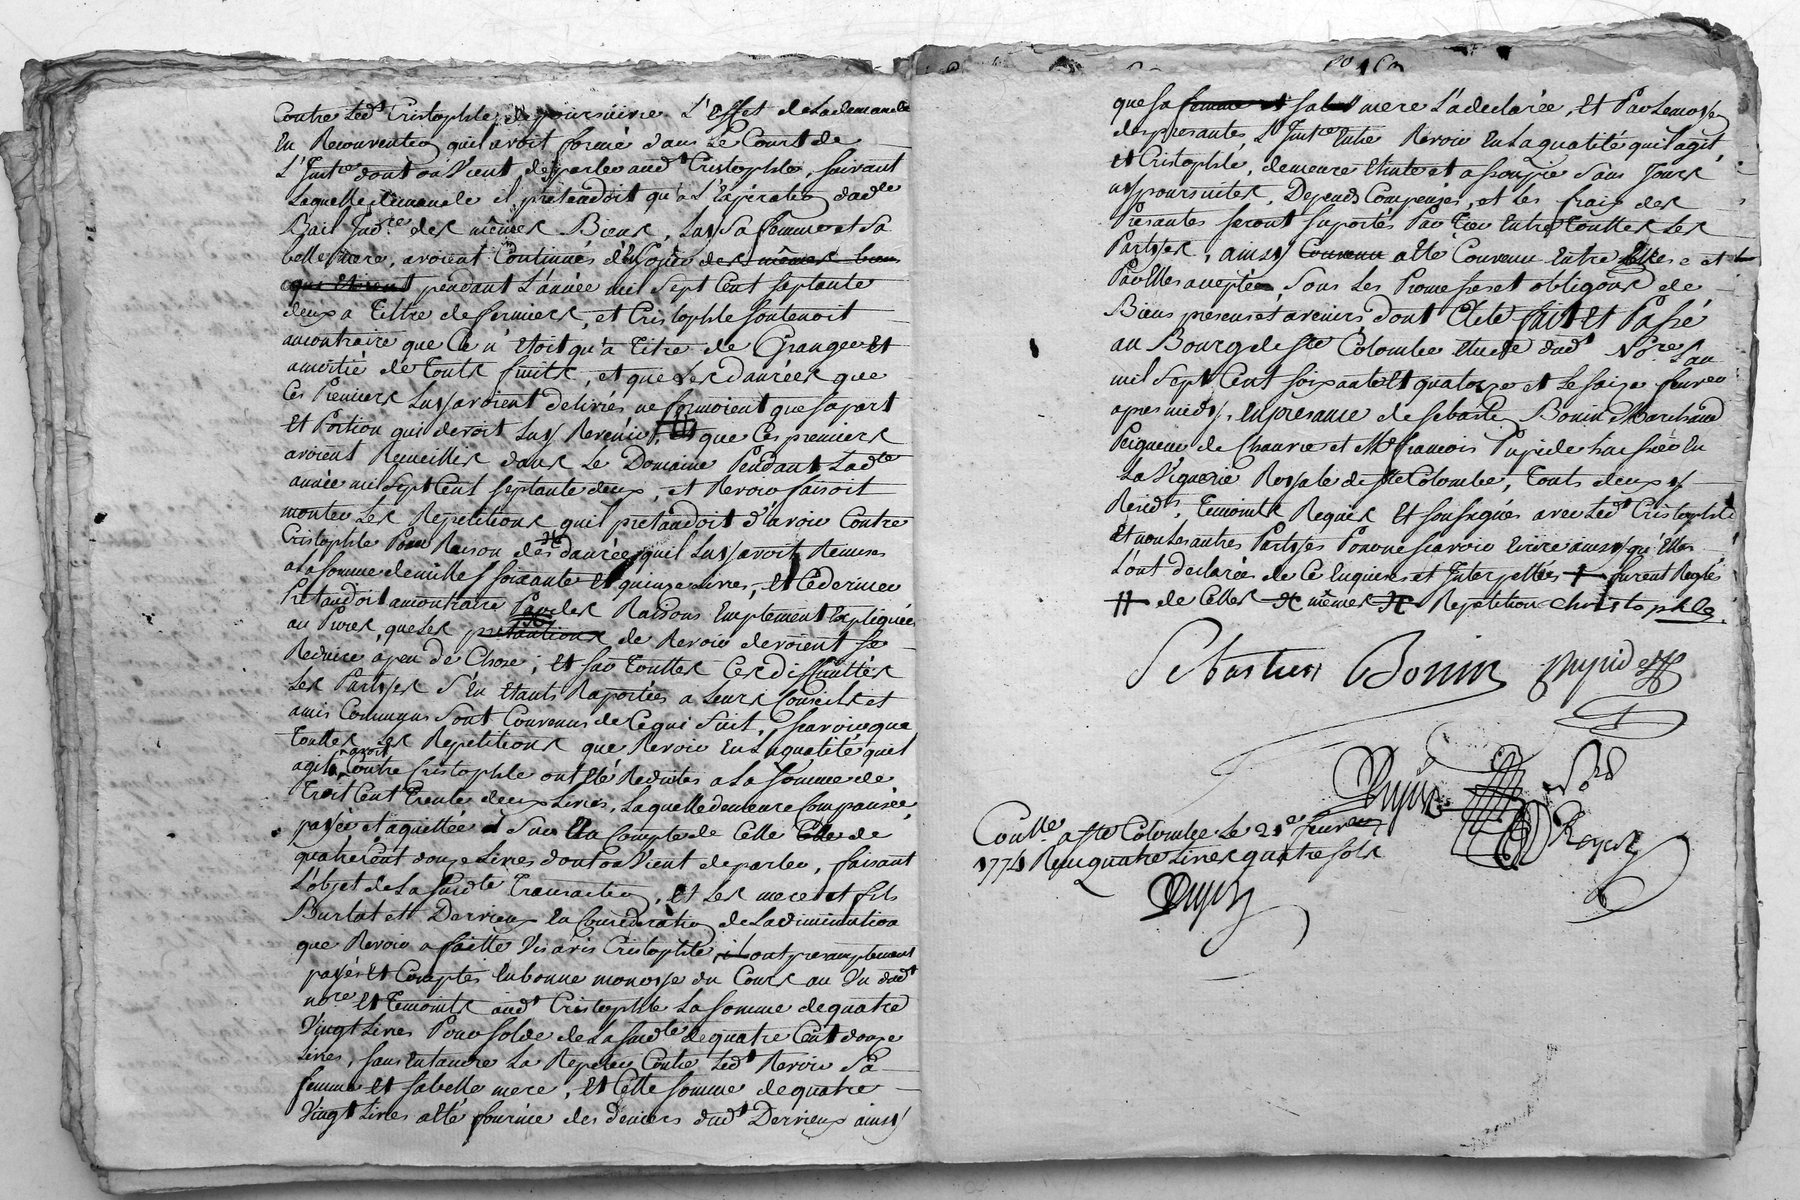 Contre Led.t Cristophle, de poursuivre L'Effet de La demande
En Reconvention quil avoit formé dans Le Court de
L'Inst.ce dont on Vient de parler aud.t Cristophle, suivant
Laquelle demande il pretendoit qu'a L'Expiration dud.t
Bail Jud.re des mêmes Biens, Luy sa femme et sa
belle mere, avoient Continués de Jouir des mêmes biens
pendant L'année mil sept Cent septante
deux a Tiltre de fermier, et Cristophle soutenoit
au contraire que Ce n'Etoit qu'a Titre de Granger Et
a moitié de Touts fruits, et que Les danrées que
Ces Premiers Luy avoient delivrés ne formoient que sa part
Et Portion qui devoit Luy Revenir, et que Ces premiers
avoient Recueilles dans Le Domaine Pendant Lad.te
année mil sept Cent septante deux, et Revoir faisoit
monter Les Repetitions quil pretandoit d'avoir Contre
Cristophle Pour Raison des danrées quil Luy avoit Remises
a La somme de mille soixante Et quinze Livres, Et Ce dernier
Pretandoit au contraire Par des Raisons Emplement Expliquées
au Proces, que Les pretantions de Revoir devoient se
Reduire a peu de Chose; Et sur Touttes Ces difficultés
Les Partyes S'En Etants Raportées a Leurs Conseils et
amis Communs Sont Convenus de Ce qui Suit, sçavoir que
Touttes Les Repetitions que Revoir En La qualité quil
agit avoit Contre Cristophle ont Eté Reduites a La somme de
Trois Cent Trente deux Livres, Laquelle demeure Compansée,
payée et aquittée Sur Le Compte de Celle de
quatre Cent douze Livres dont on Vient de parler, faisant
L'objet de La susd.te Transaction, Et Les mere et fils
Burlat et Derrieux En Consideration de La diminution
que Revoir a faitte Vis avis Cristophle, ont presamptement
payés Et Comptés En bonne monoye du Cours au Vu dud.t
no.re Et Temoints aud.t Cristophle La somme de quatre
Vingt Livres Pour solde de La susd.te de quatre Cent douze
Livres, sans Entandre La Repeter Contre Led.t Revoir Sa
femme Et sa belle mere, Et Cette somme de quatre
Vingt Livres a Eté fournie des deniers dud.t Derrieux ainsy
que sa femme et sa mere L'a declarée, Et Par Le moyen
des presantes L'Inst.ce Entre Revoir En La qualité quil agit,
Et Cristophle, demeure Etinte et assoupie Sans Jours
ny poursuites, Depends Compensés, et Les fraix des
Presantes seront suportés Par Tier Entre Touttes Les
Partyes, ainsy Convenu a Eté Convenu Entre Elles et
Par Elles acceptée, Sous Les Promesses et obligons de
Biens presens et avenirs, dont Acte fait Et Passé
au Bourg de Ste Colombe Etude dud.t No.re L'an
mil sept Cent soixante Et quatorze et Le saize fevrier
apres midy. En presance de Sebastien Bonin Marchand
Peigneur de Chanvre et M.e francois Pupide huissier En
La Viguerie Royale de Ste Colombe, Touts deux y
Resid.ts, Temoints Requis Et soussignés avec Led.t Cristophle
Et non Les autres Partyes Pour ne scavoir Ecrire ainsy qu'Elles
L'ont declarées de Ce Enquises et Interpellées + furent Reglés
++ de Celles mêmes Repetition Christophle
Sebastien Bonin Pupide
Dujin
Royer
Con.lle a Ste Colombe Le 21e fevrier
1774 Reçu quatre Livres quatre sols